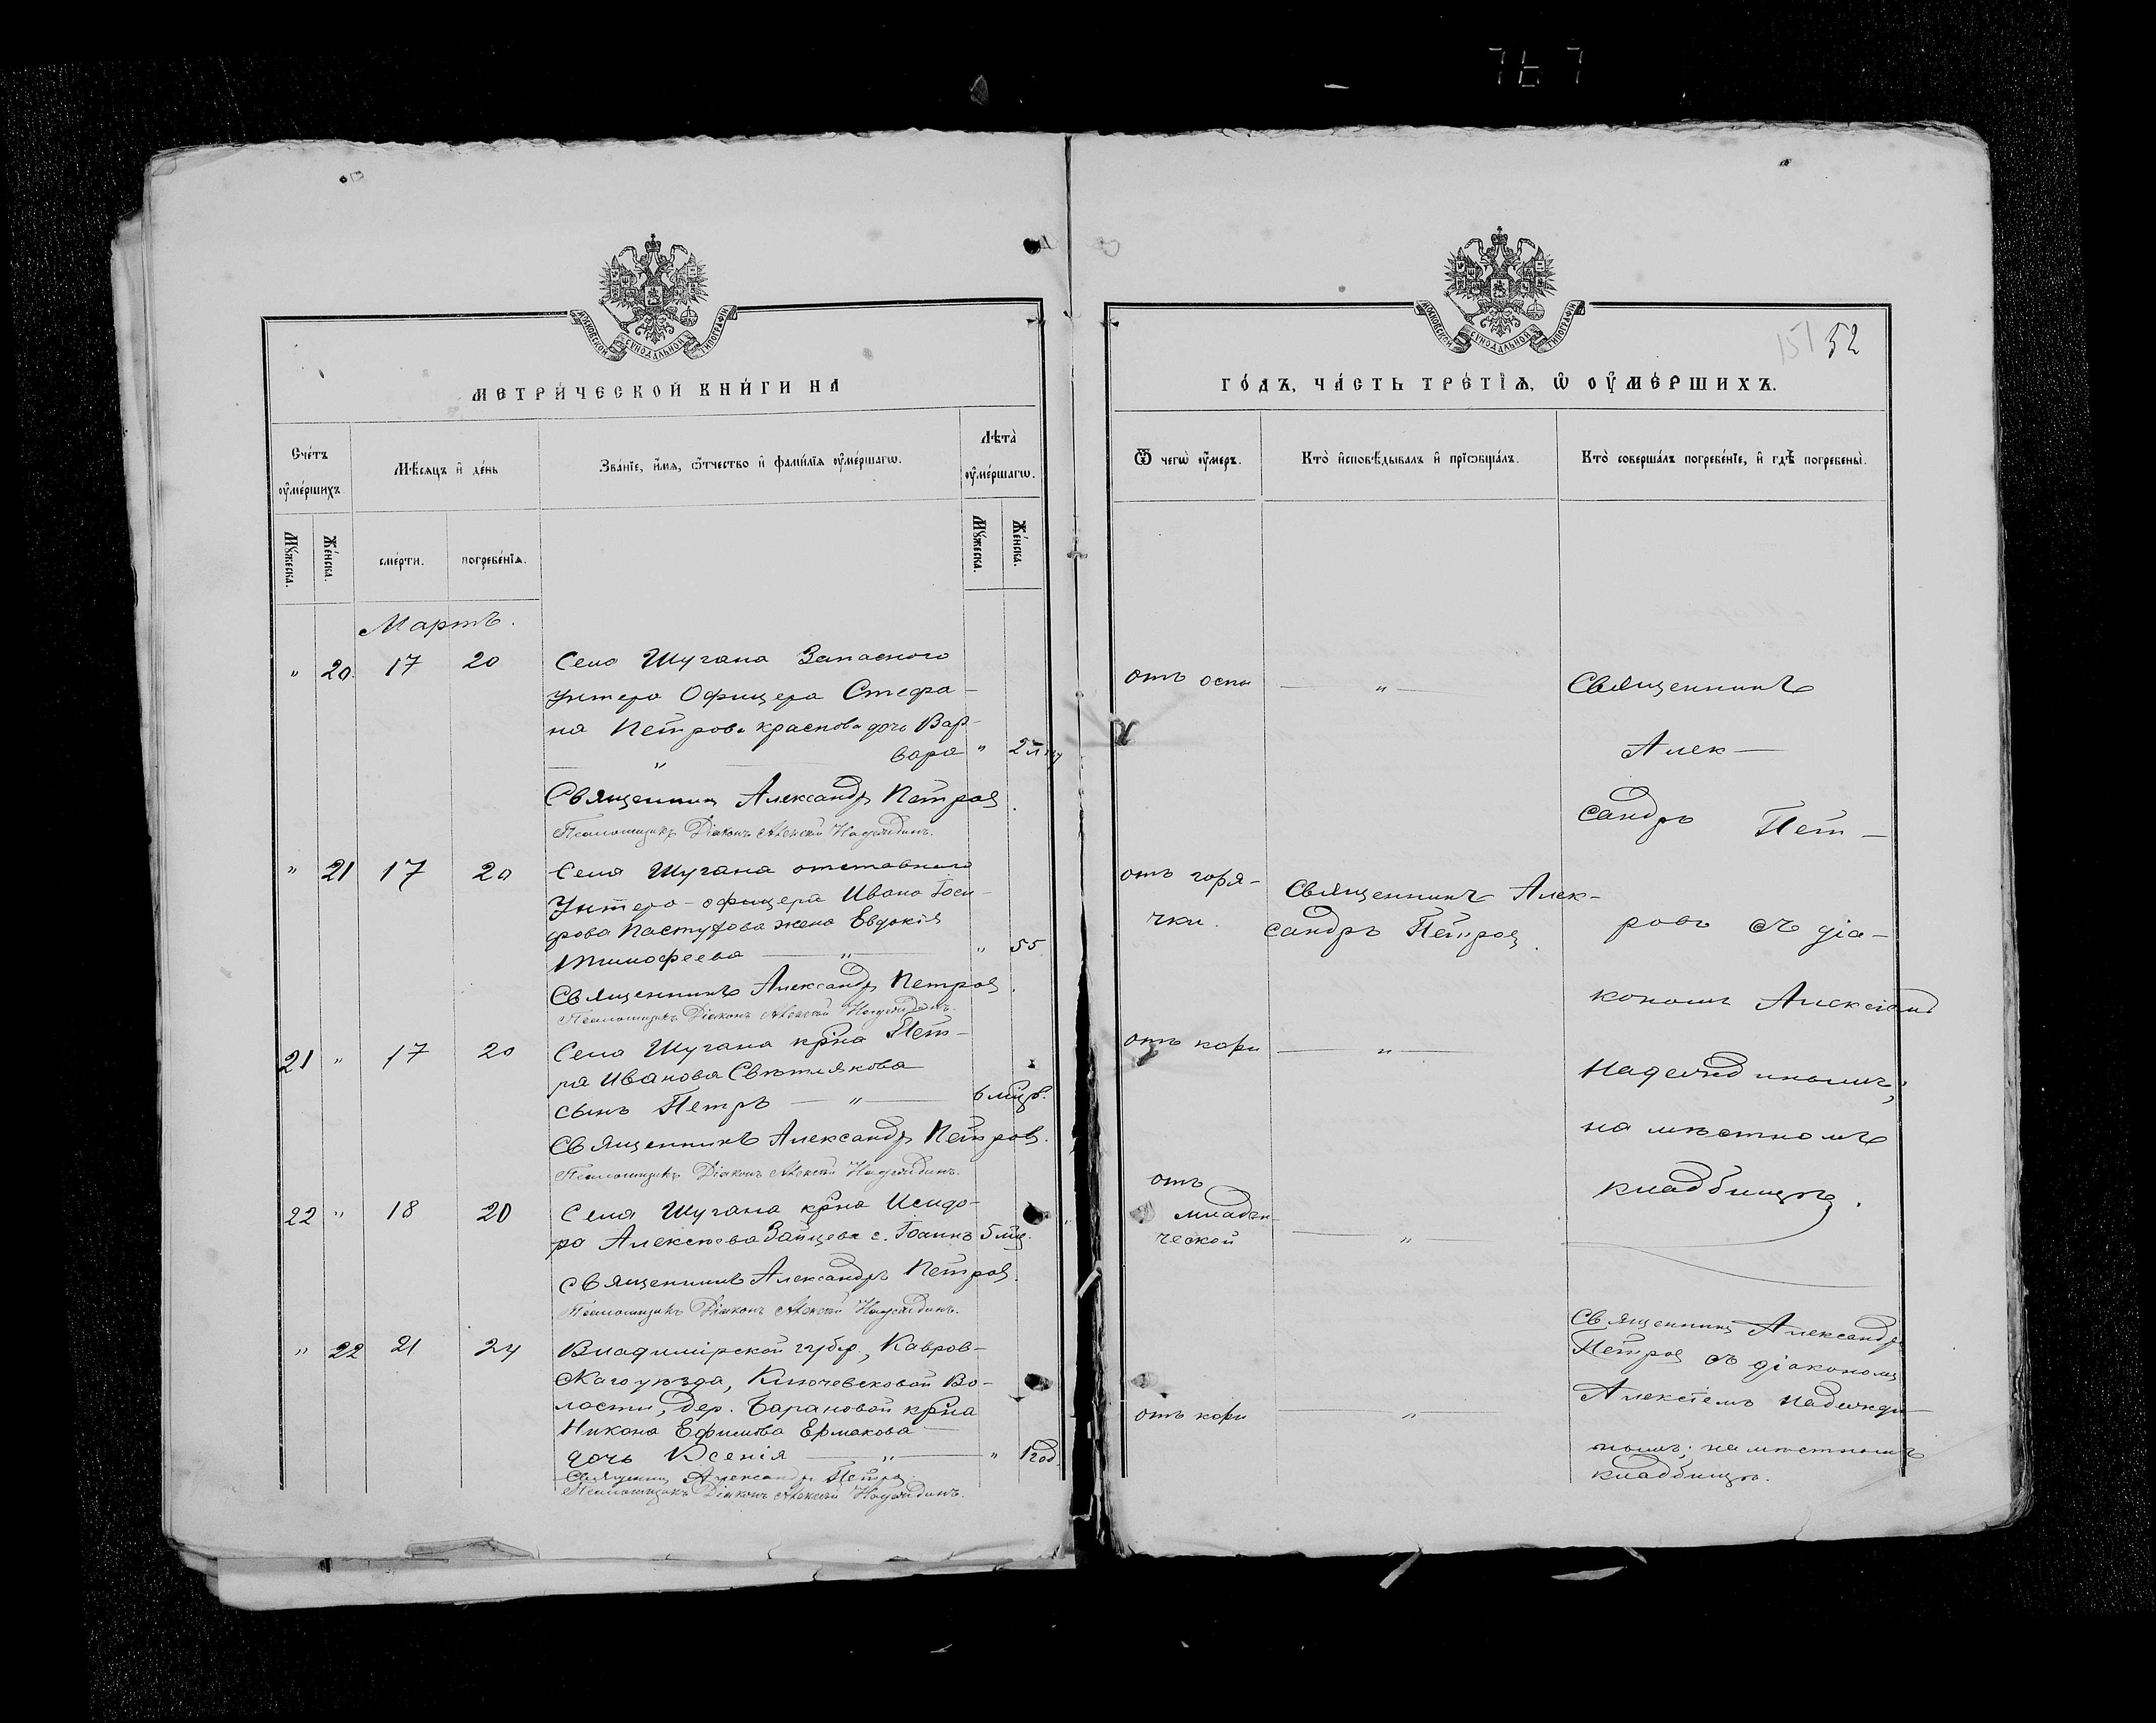 МОСКОВСКОЙ СУНОДАЛЬНОЙ ТИПОГРАФІИ
МЕТРИ́ЧЕСКОЙ КНИ́ГИ НА
Сче́тъ ᲂу҆ме́ршихъ
Мѣ́сяцъ и҆ де́нь
Зва́нїе, и҆́мѧ, ѻ҆́тчество и҆ фами́лїѧ ᲂу҆ме́ршагѡ.
Лѣта̀ ᲂу҆ме́ршагѡ.
Мꙋ́жеска.
Же́нска.
сме́рти.
погребе́нїѧ.
Мꙋ́жеска.
Же́нска.
Мартъ.
" 20. 17 20 Села Шугана Запасного
унтеръ Офицера Стефа-
на Петрова Краснова дочь Вар-
вара " 2
"
Священникъ Александръ Петровъ.
Псаломщикъ Діаконъ Алексѣй Надеждинъ.
" 21 17 20 Села Шугана отставного
Унтеръ-офицера Ивана Іоси-
фова Пастухова жена Евдокія
Тимофеева " " 55
Священникъ Александръ Петровъ.
Псаломщикъ Діаконъ Алексѣй Надеждинъ.
21 " 17 20 Села Шугана крña Пет-
ра Иванова Свѣтлякова
сынъ Петръ " 6 мцъ.
Священникъ Александръ Петровъ.
Псаломщикъ Діаконъ Алексѣй Надеждинъ.
22 " 18 20 Села Шугана крña Исидо-
ра Алексѣева Зайцева с. Іоаннъ 5 мц.
Священникъ Александръ Петровъ.
Псаломщикъ Діаконъ Алексѣй Надеждинъ.
" 22 21 24 Владимірской губер, Кавров-
скаго уѣзда, Ключевсковой Во-
лости, дер. Барановой крña
Никона Ефимова Ермакова
дочь Ксенія " " 1 год
Священникъ Александръ Петровъ.
Псаломщикъ Діаконъ Алексѣй Надеждинъ.
МОСКОВСКОЙ СУНОДАЛЬНОЙ ТИПОГРАФІИ
151 52
ГО́ДЪ, ЧА́СТЬ ТРЕ́ТЇѦ, Ѡ҆ ОУ҆МЕ́РШИХЪ.
Ѿ чегѡ̀ ᲂу҆́меръ.
Кто̀ и҆сповѣ́дывалъ и҆ прїѡбща́лъ.
Кто̀ соверша́лъ погребе́нїе, и҆ гдѣ̀ погребены̀.
отъ оспы "
отъ горя-
чки.
Священникъ Алек-
сандръ Петровъ.
отъ кори "
отъ
младен-
ческой "
отъ кори "
Священникъ
Алек-
сандръ Пет-
ровъ съ діа-
кономъ Алексѣемъ
Надеждинымъ;
на мѣстномъ
кладбищѣ.
Священникъ Александръ
Петровъ съ діакономъ
Алексѣемъ Надежди-
нымъ; на мѣстномъ
кладбищѣ.